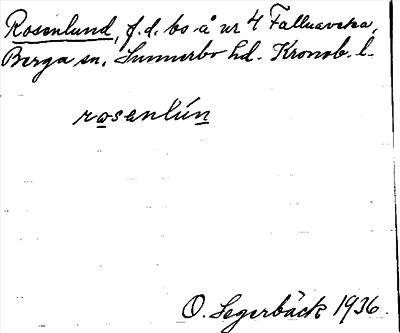 Rosenlund, f.d. bs å nr 4 Falluavska,
Berga sn, Sunnerbo hd. Kronob. l.
rosenlún
O. Segerbäck 1936.